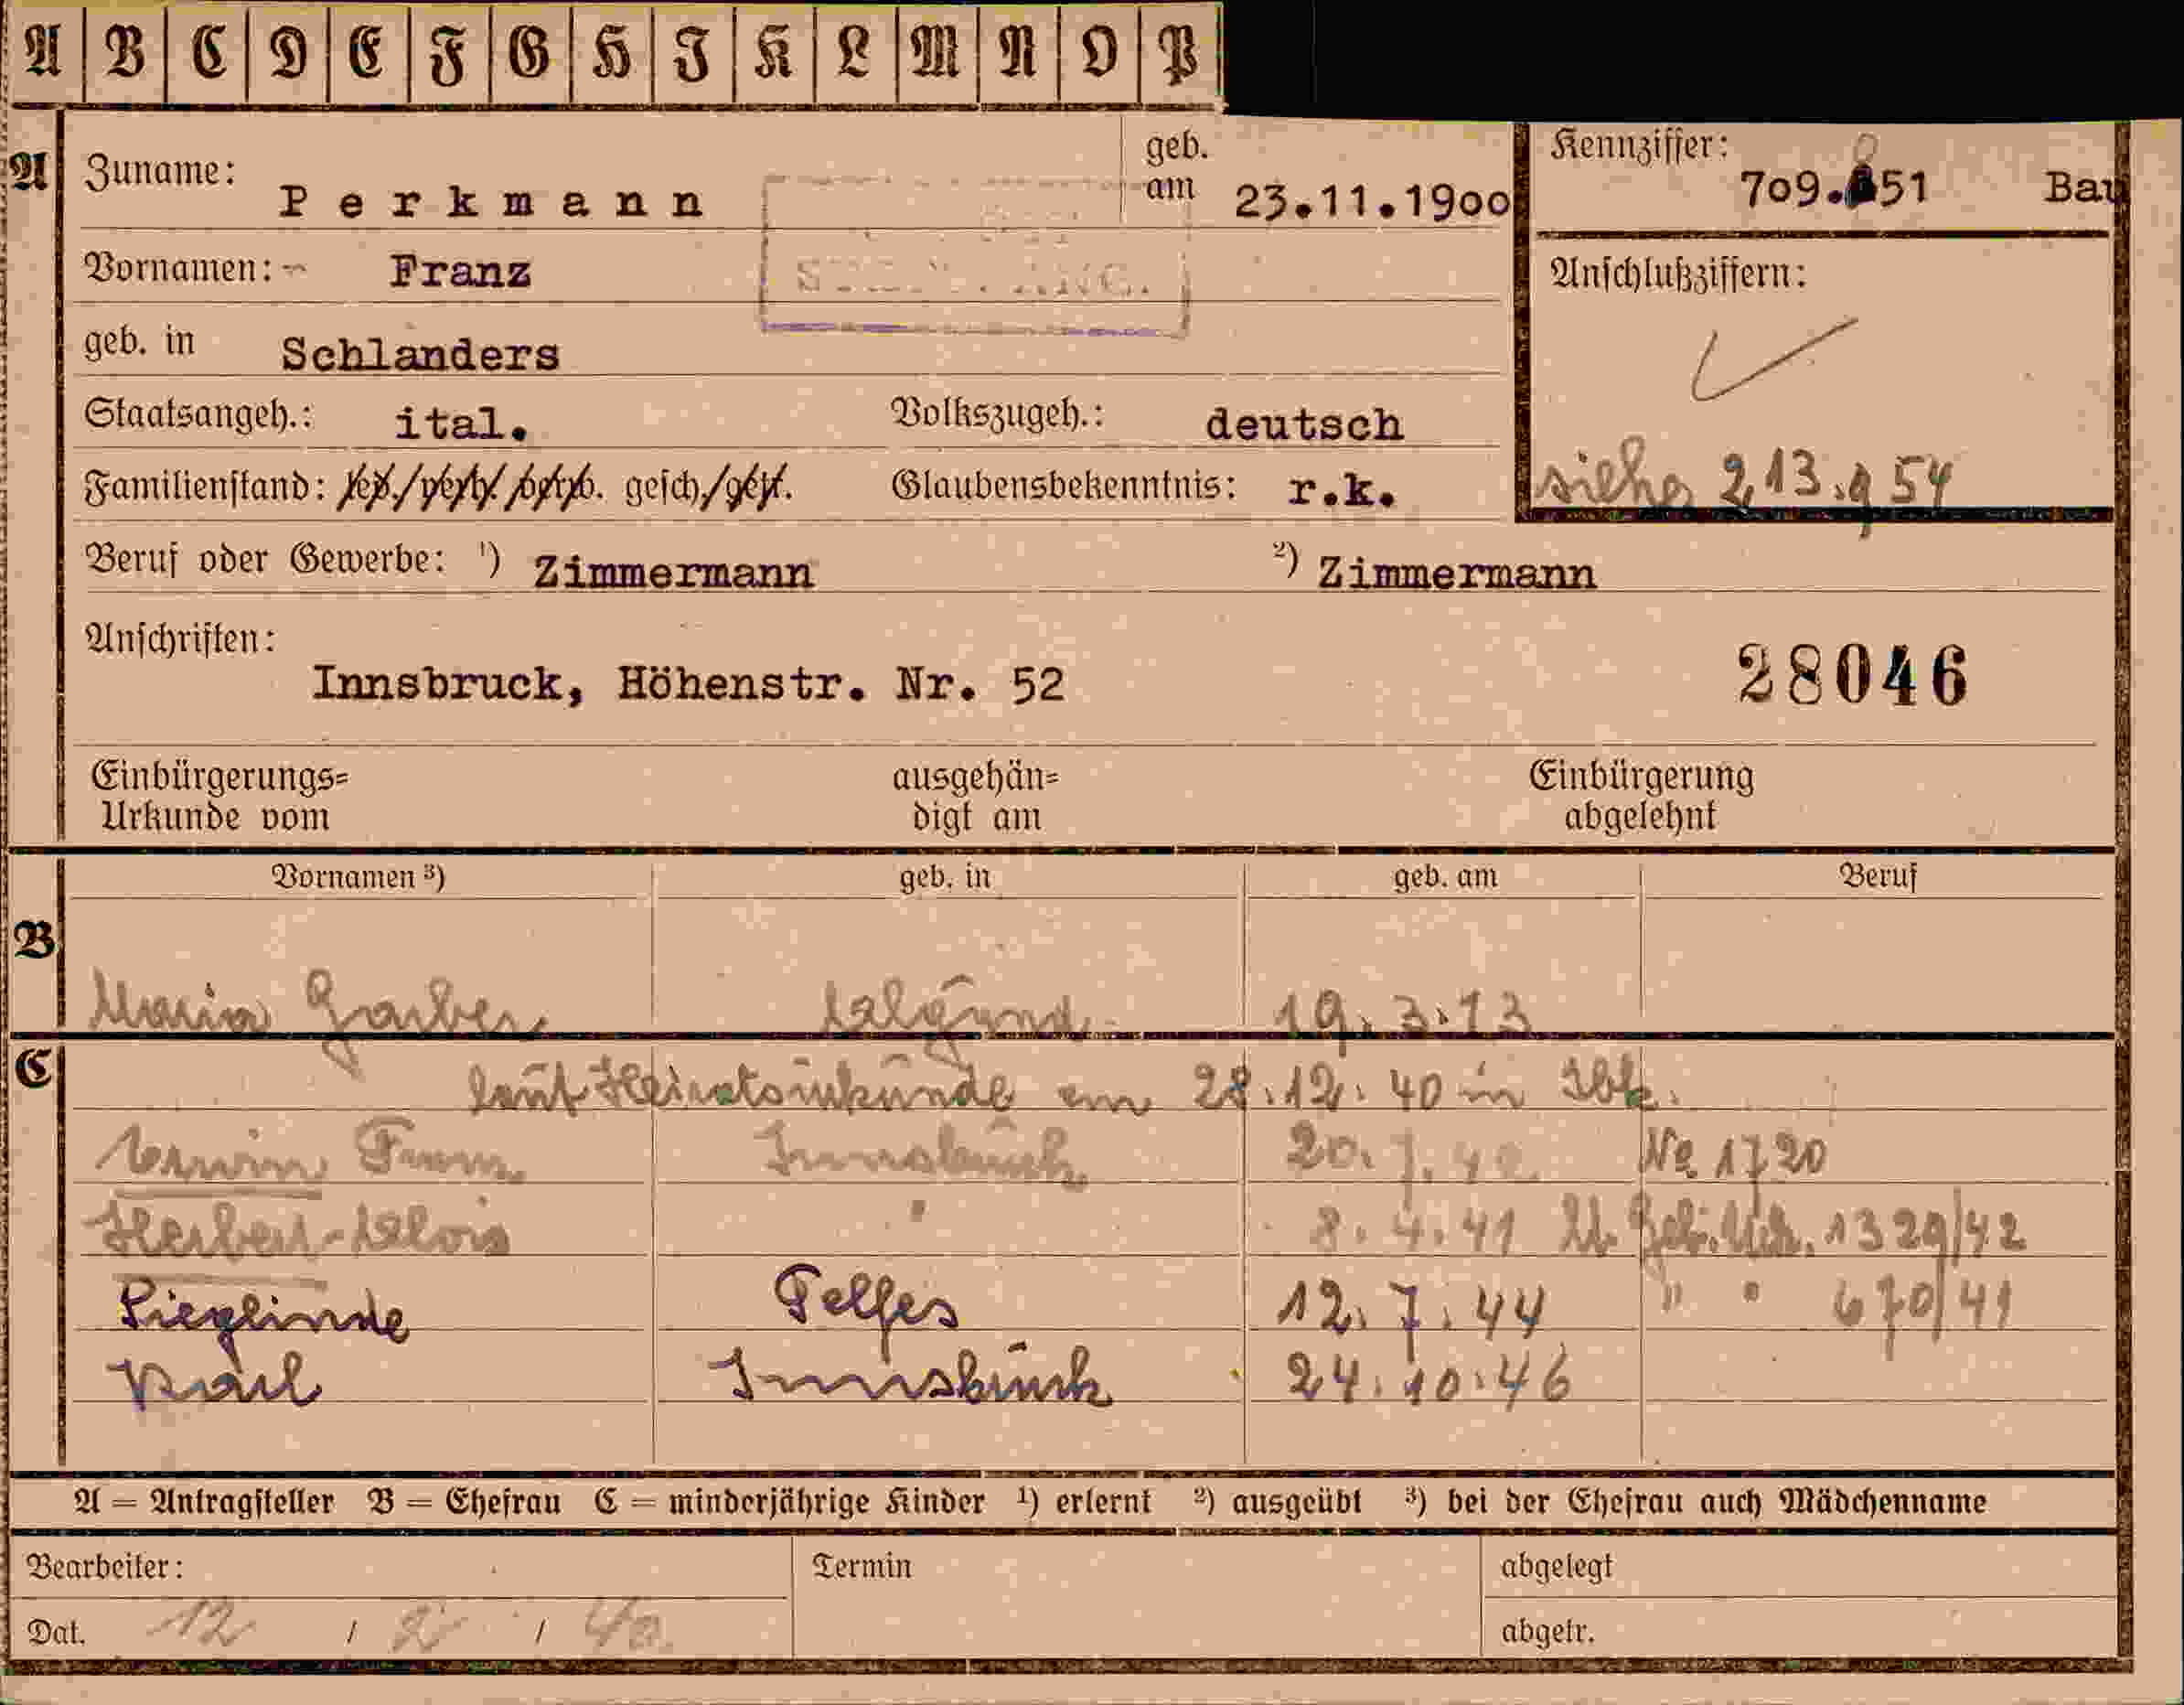 A B C D E F G H I K L M N O P
A Zuname: Perkmann geb. am 23.11.1900 Kennziffer: 709. 51 Bau
Vornamen: Franz Anschlußziffern:
geb. in Schlanders
Staatsangeh.: ital. Volkszugeh.: deutsch
Familienstand: led./verh./verw. gesch./get. Glaubensbekenntnis: r.k. siehe 213. 54
Beruf oder Gewerbe: ¹) Zimmermann ²) Zimmermann
Anschriften:
Innsbruck, Höhenstr. Nr. 52 28046
Einbürgerungs=
Urkunde vom
ausgehän=
digt am
Einbürgerung
abgelehnt
Vornamen ³) geb. in geb. am Beruf
B
Maria 19.3.13
C
laut Heiratsurkunde am 28.12.40 in Ibk.
Erwin Franz Innsbruck 20.7.42 No 1720
Herbert-Alois " 8.4.41 lt. Geb. Urk. 1329/42
Sieglinde Telfes 12.7.44 " " 670/41
Karl Innsbruck 24.10.46
A = Antragsteller B = Ehefrau C = minderjährige Kinder ¹) erlernt ²) ausgeübt ³) bei der Ehefrau auch Mädchenname
Bearbeiter: Termin abgelegt
Dat. 12 / 2 / 40 abgetr.